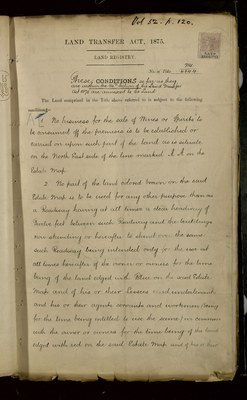 Vol 52. p. 120.
LAND TRANSFER ACT, 1875.
LAND REGISTRY.
No. of Title
These CONDITIONS
The Land comprised in the Title above referred to is subject to the following
1. No licenses for the sale of Wines or Spirits to
be consumed off the premises is to be established or
carried on upon such part of the land as is situate
on the North East side of the line marked A. A. on the
Estate Map.
2. No part of the land colored brown on the said
Estate Map is to be used for any other purpose than as
a Roadway having at all times a clear headway of
twelve feet between such Roadway and the buildings
now standing or hereafter to abut over the same
such Roadway being intended only for the use at
all times hereafter of the owner or owners for the time
being of the land edged with Blue on the said Estate
Map and of his or their lessees and undertenants
and his or their agents servants and workmen
for the time being entitled to use the same in common
with the owner or owners for the time being of the land
edged with red on the said Estate Map and of his or their